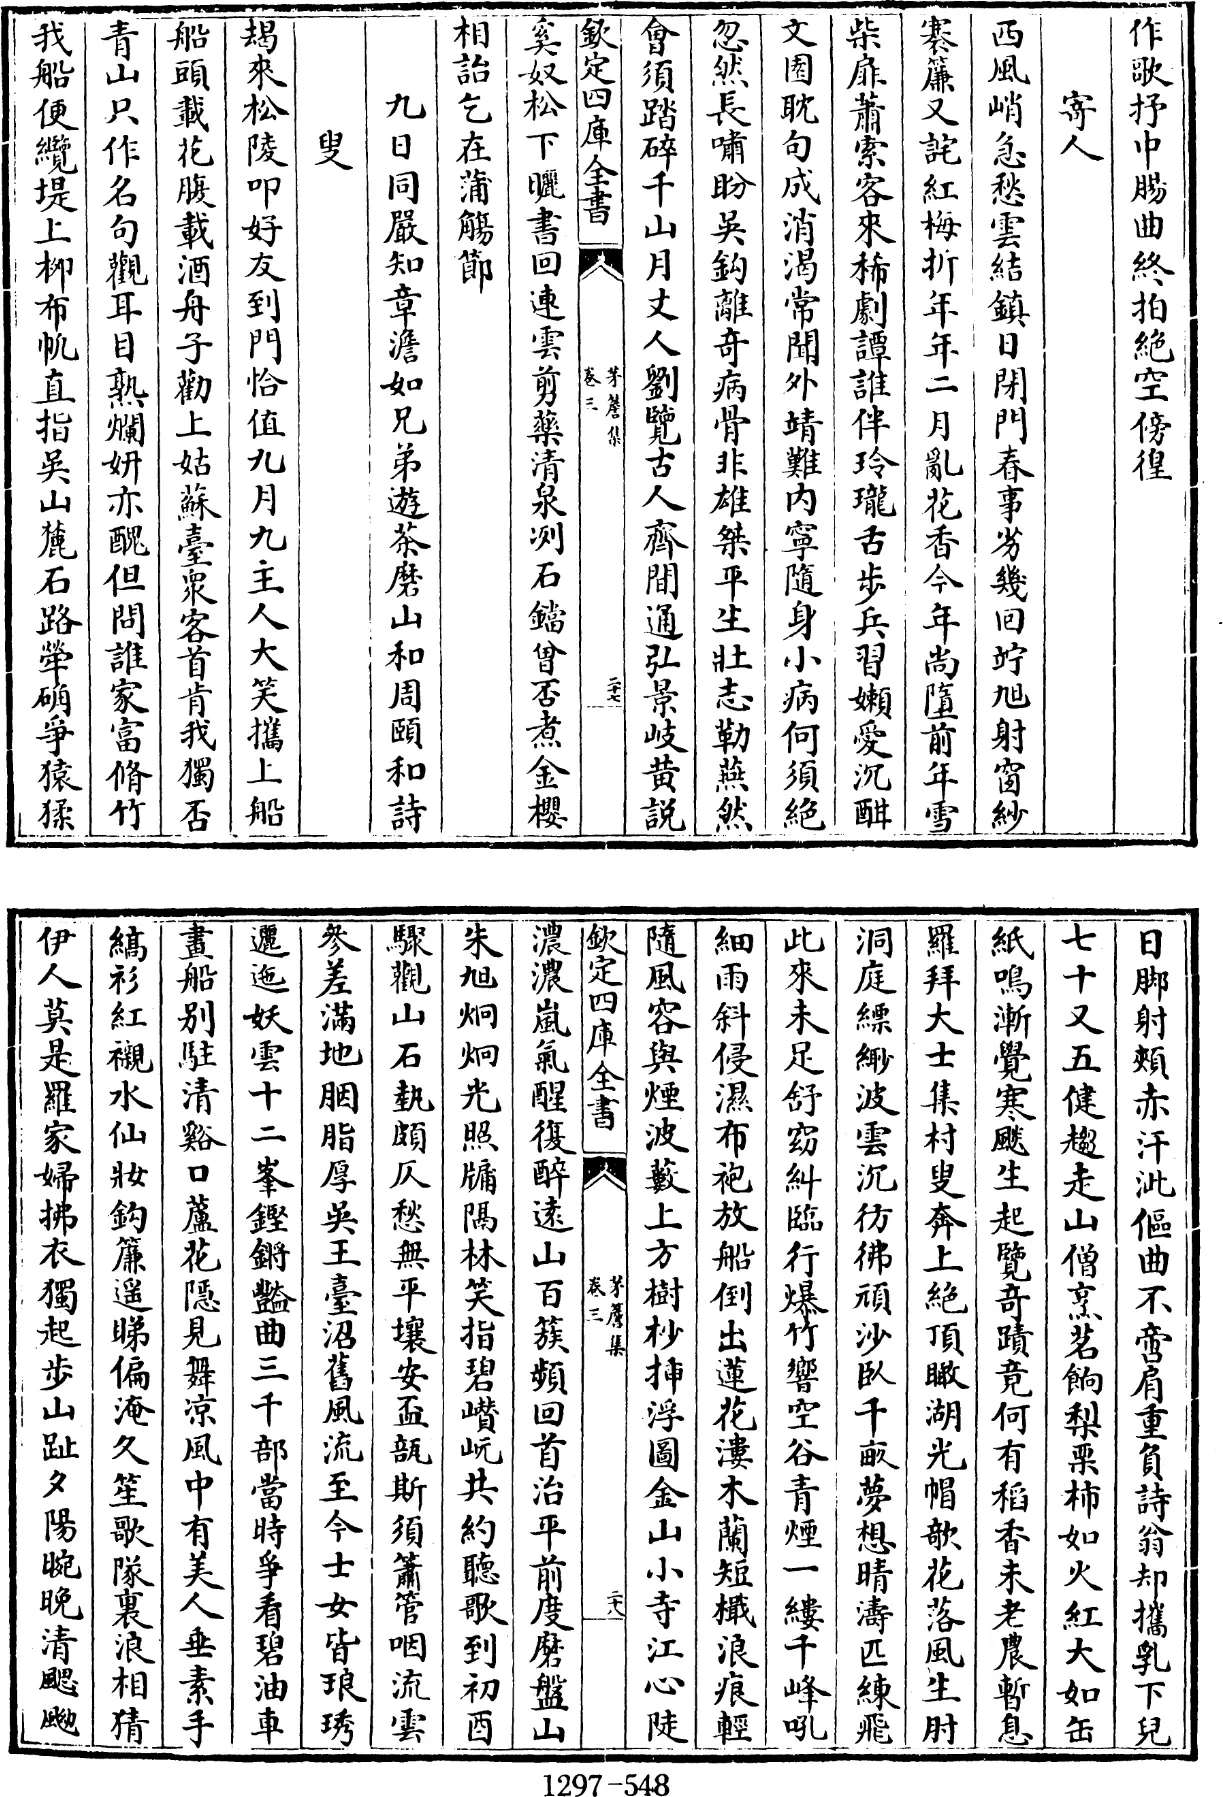 作歌抒中腸曲終拍絶空傍徨
寄人
西風峭急愁雲結鎮日閉門春事劣幾回竚旭射窗紗
褰簾又詫紅梅折年年二月亂花香今年尚墮前年雪
柴扉蕭索客來稀劇譚誰伴玲瓏舌步兵習嬾愛沉酣
文園耽句成消渴常聞外靖難内寧隨身小病何須絶
忽然長嘯盼吳鈎離奇病骨非雄桀平生壯志勒燕然
會須踏碎千山月丈人劉覽古人齋間通弘景岐黄説
欽定四庫全書
茅簷集
卷三
二十七
奚奴松下曬書回連雲剪藥清泉冽石鐺曾否煮金櫻
相詒乞在蒲觴節
九日同嚴知章澹如兄弟遊茶磨山和周頤和詩
叟
朅來松陵叩好友到門恰值九月九主人大笑攜上船
船頭載花腹載酒舟子勸上姑蘇臺衆客首肯我獨否
青山只作名句觀耳目熟爛妍亦醜但問誰家富脩竹
我船便纜堤上柳布帆直指吳山麓石路犖确爭猿猱
日脚射頰赤汗泚傴曲不啻肩重負詩翁却攜乳下兒
七十又五健趨走山僧烹茗餉梨栗柿如火紅大如缶
紙鳴漸覺寒颷生起覽奇蹟竟何有稻香未老農暫息
羅拜大士集村叟奔上絶頂瞰湖光帽欹花落風生肘
洞庭縹緲波雲沉彷彿頑沙臥千畝夢想晴濤匹練飛
此來未足舒窈糾臨行爆竹響空谷青煙一縷千峰吼
細雨斜侵濕布袍放船倒出蓮花漊木蘭短檝浪痕輕
隨風容與煙波藪上方樹杪揷浮圖金山小寺江心陡
欽定四庫全書
茅簷集
卷三
二十八
濃濃嵐氣醒復醉遠山百簇頻回首治平前度磨盤山
朱旭烱烱光照牖隔林笑指碧巑岏共約聽歌到初酉
驟觀山石埶頗仄愁無平壤安盃瓿斯須簫管咽流雲
參差滿地胭脂厚吳王臺沼舊風流至今士女皆琅琇
邐迤妖雲十二峯鏗鏘豔曲三千部當時爭看碧油車
畫船别駐清谿口蘆花隱見舞凉風中有美人垂素手
縞衫紅襯水仙妝鈎簾遥睇偏淹久笙歌隊裏浪相猜
伊人莫是羅家婦拂衣獨起步山趾夕陽晼晚清颸颰
1297-548